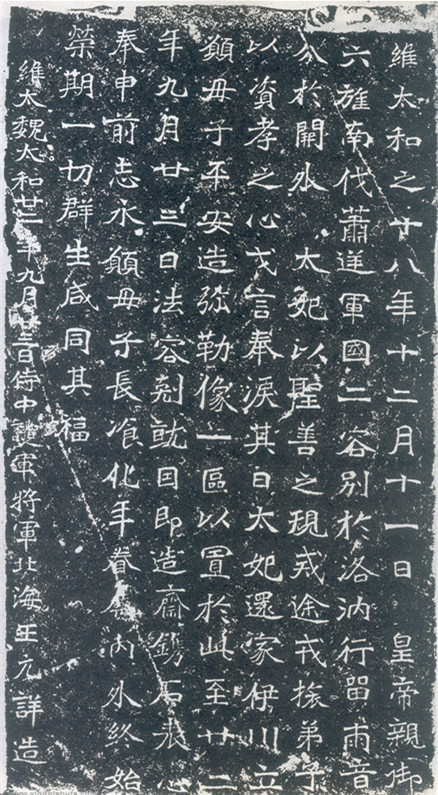 維太和之十八年十二月十一日 皇帝親御
六旌南伐蕭逆軍國二容別於洛汭行留兩音
分於關外 太妃以聖善之規戒途戎旅弟子
以資孝之心戈言奉淚其日太妃還家伊川立
願母子平安造弥勒像一區以置於此至廿二
年九月廿三日法容剋就因即造齋鐫石表心
奉申前志永願母子長飡化年眷屬內外終始
榮期一切群生咸同其福
維太魏太和廿二年九月廿三日侍中護軍將軍北海王元詳造